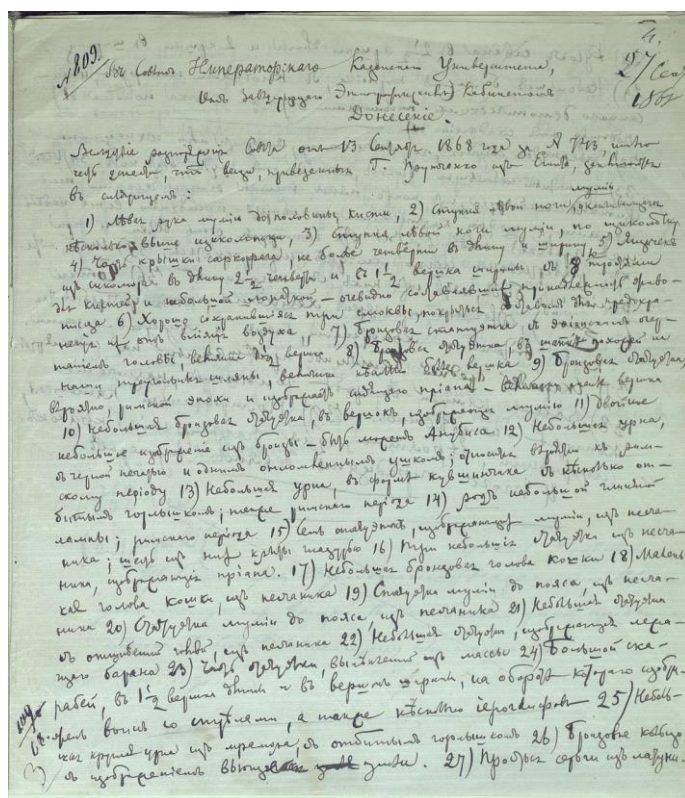 № 809.
27 Сент
186
Въ Совѣтъ Императорскаго Казанскаго Университета,
Завѣдующаго Этнографическимъ Кабинетомъ
Донесеніе.
Вслѣдствіе Совѣта отъ 13 Сентября 1868 года за № 743, имѣю
честь донести, что вещи, привезенныя Г. изъ Египта, заключаются
въ слѣдующемъ:
1) Лѣвая рука муміи до половины кисти, 2) Ступня лѣвой ноги муміи,
нѣсколько выше щиколотки, 3) Ступня лѣвой ноги муміи, по щиколотку
4) Часть крышки саркофага, не болѣе четверти въ длину и ширину, 5) Ящичекъ
изъ сикомора въ длину 2 1/2 четверти и въ 1 1/2 вершка ширины, съ
для кистей и небольшой – очевидно составлявшій принадлежность живо-
писца 6) Хорошо сохранившіяся три смоквы,
отъ вліянія воздуха, 7) Бронзовая статуэтка съ
головы, величиною вершка 8) Бронзовая статуэтка, въ шапкѣ похожей на
наши треугольныя шляпы, величина вершка 9) Бронзовая статуэтка,
вѣроятно, римской эпохи и изображаетъ сидящаго пріапа – вершка
10) Небольшая бронзовая статуэтка, въ вершокъ, изображающая мумію 11) Двойное
небольшое изображеніе изъ бронзы – быть можетъ Анубиса 12) Небольшая урна,
съ черной и однимъ отломленнымъ ушкомъ; относится вѣроятно къ рим-
скому періоду 13) Небольшая урна, въ формѣ кувшинчика съ нѣсколько от-
битымъ горлышкомъ; также римскаго періода 14) родъ небольшой глиняной
лампы; римскаго періода 15) Семь статуэтокъ, изображающихъ муміи, изъ песча-
ника; шесть изъ нихъ крыты глазурью 16) Три небольшія статуэтки изъ песча-
ника, изображающія пріапа. 17) Небольшая бронзовая голова кошки 18) Малень-
кая голова кошки, изъ песчаника 19) Статуэтка муміи до пояса, изъ песча-
ника 20) Статуэтка муміи до пояса, изъ песчаника 21) Небольшая статуэтка
съ отшибенной головой, изъ песчаника 22) Небольшая статуэтка, изображающая лежа-
щаго барана 23) Часть статуэтки изъ массы 24) Большой ска-
рабей, въ 1 1/2 вершка длины и въ вершокъ ширины; на оборотѣ котораго изобра-
женъ воинъ со стрѣлами, а также нѣсколько іероглифовъ 25) Неболь-
шая круглая урна изъ мрамора, съ отбитымъ горлышкомъ 26) Бронзовое кольцо
съ изображеніемъ змѣи. 27) Простыя серьги изъ латуни.